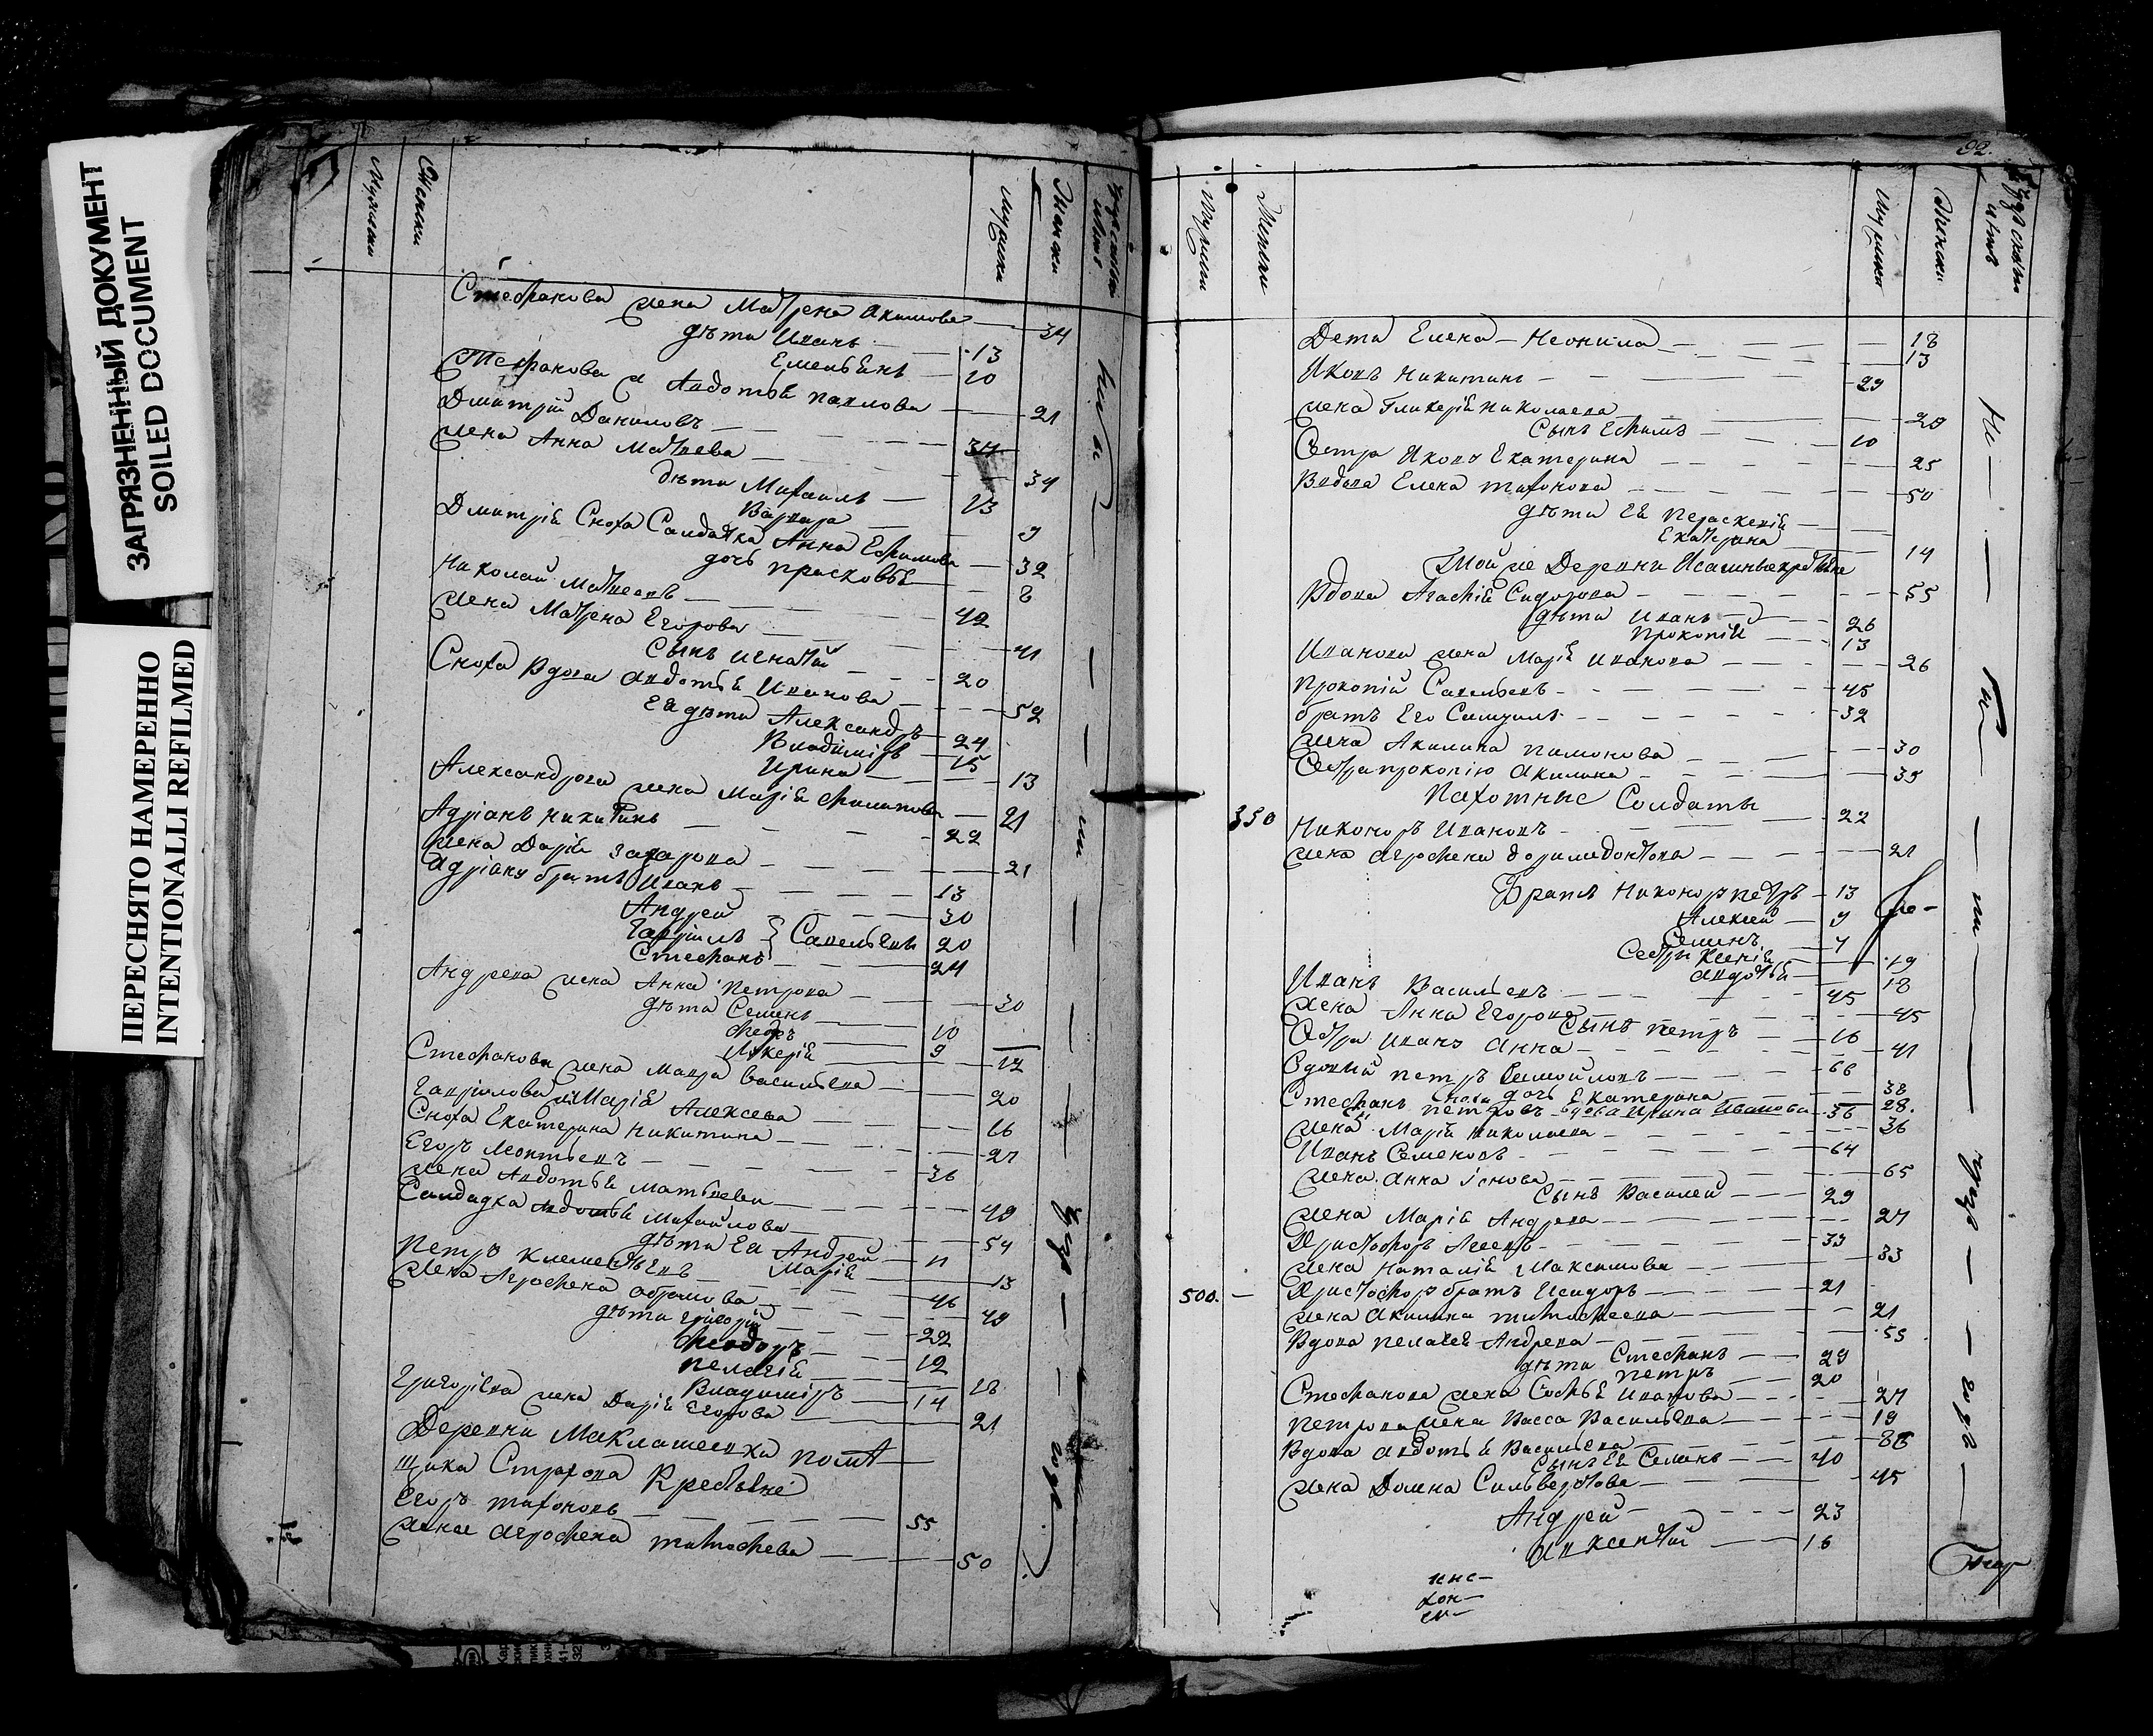 ЗАГРЯЗНЕННЫЙ ДОКУМЕНТ
SOILED DOCUMENT
ПЕРЕСНЯТО НАМЕРЕННО
INTENTIONALLI REFILMED
Мужски
Женски
мужски
Женски
Стефанова жена Матрена Акимова 34
дѣти Иванъ 13
Емельянъ 10
Стефанова ж Авдотья павлова 21
Дмитрій Даниловъ 34
жена Анна Матвева 34
дѣти Михаилъ 13
Варвара 9
Дмитрій Сноха Салдатка Анна Ефимова 32
дочь прасковья 8
Николай Матвеевъ 42
жена Матрена Егорова 41
сынъ игнатій 20
Сноха Вдова авдотья Иванова 52
Ея дѣти Александръ 24
Владимиръ 15
Ирина 13
Александрова жена Марія филипова 21
Адріанъ никитинъ 22
жена Дарія захарова 21
Адріану братъ Иванъ 13
Андрей 30
Гаврилъ } Савельевы 20
Стефанъ 24
Андреева жена Анна Петрова 30
дѣти Семенъ 10
федоръ 9
Лукерія 12
Стефанова жена мавра васильева 20
Гаврилова ж Марія Алексева 16
Сноха Екатерина Никитина 27
Егоръ Леонтьевъ 36
жена Авдотья матвеева 49
Салдадка Авдотья Михайлова 54
дѣти Ея Андрей 11
Марія 13
Петръ Клементьевъ 46
жена Агрофена Абрамова 49
дѣти григорій 22
Феодоръ 12
пелагія 18
Владимиръ 14
Григоріева жена Дарія Егорова 21
Деревни Маклашевки помѣ
щика Страхова Крестьяне
Егоръ тихоновъ 55
жена агрофена тимофеева 50
92.
Женски
мужски
Женски
Дети Елена – Неонила 18
13
Яковъ Никитинъ 29
жена Гликерія николаева 28
сынъ Ефимъ 10
Сестра Якову Екатерина 25
Вдова Елена тихонова 50
дѣти Ея Параскевія
Екатерина 14
Той же Деревни
Вдова Агафія Сидорова 55
дѣти Иванъ 26
прокопій 13
Иванова жена Марія иванова 26
Прокопій Савельевъ 45
братъ Его Самуилъ 32
жена Акилина пимонова 30
Сестра прокопію Акилина 35
Пахотные Солдаты
350 Никоноръ Ивановъ 22
жена агрофена доримедонтова 21
Братья Никонору петръ 13
Алексей 9
Семенъ 7
Сестры Ксенія 19
авдотья 18
Иванъ Васильевъ 45
жена Анна Егорова 45
Сынъ петръ 16
Сестра Ивану Анна 41
Вдовый петръ 66
дочь Екатерина 38
Сноха вдова Ирина Иванова 28.
Стефанъ петровъ 36
жена Марія николаева 36
Иванъ Семеновъ 64
жена Анна 65
Сынъ Василей 29
жена Марія Андреева 27
Христофоръ 33
жена Наталія Максимова 33
500. Христофору братъ Исидоръ 21
жена Акилина тимофеева 21
Вдова пелагея Андреева 55
дѣти Стефанъ 29
петръ 20
Стефанова жена Софья Иванова 27
петрова жена Васса Васильева 19
Вдова авдотья Васильева 86
Сынъ Ея Семенъ 40
жена Домна Сильвестрова 45
Андрей 23
авксентій 16